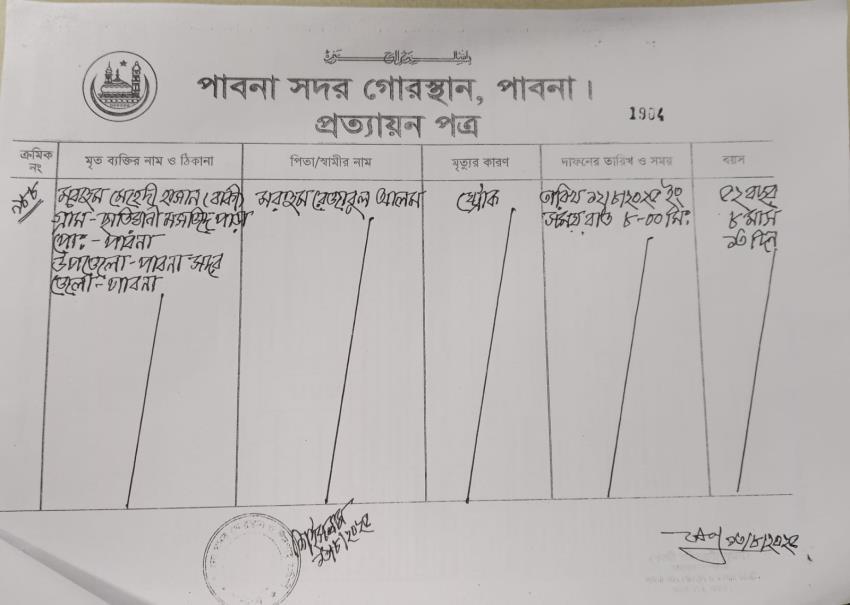 পাবনা সদর গোরস্থান, পাবনা।
1904
প্রত্যায়ন পত্র
ক্রমিক নং
মৃত ব্যক্তির নাম ও ঠিকানা
পিতা/স্বামীর নাম
মৃত্যুর কারণ
দাফনের তারিখ ও সময়
বয়স
মরহুম মেহেদী হাসান (রাকী)
গ্রাম - ছাতিয়ানী মসজিদ পাড়া
পো: - পাবনা
উপজেলা - পাবনা সদর
জেলা - পাবনা
মরহুম রেজাবুল আলম
স্ট্রোক
তারিখ ১২/৮/২০২৫ ইং
সময় রাত ৮-০০ মি:
৫২ বছর
৮ মাস
১৩ দিন
১৩/৮/২০২৫
১৩/৮/২০২৫